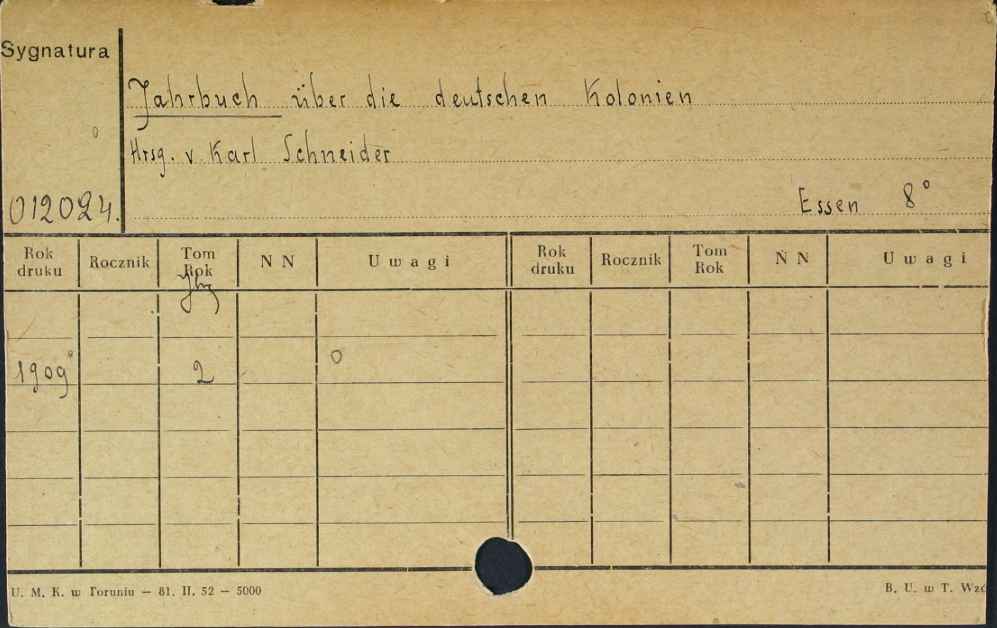 Sygnatura
Jahrbuch über die deutschen Kolonien
Hrsg. v. Karl Schneider
012024.
Essen 8°
Rok druku Rocznik Tom Rok N N Uwagi Rok druku Rocznik Tom Rok N N Uwagi
Jhg
1909° 2 o
U. M. K. w Toruniu — 81. II. 52 — 5000 B. U. w T.